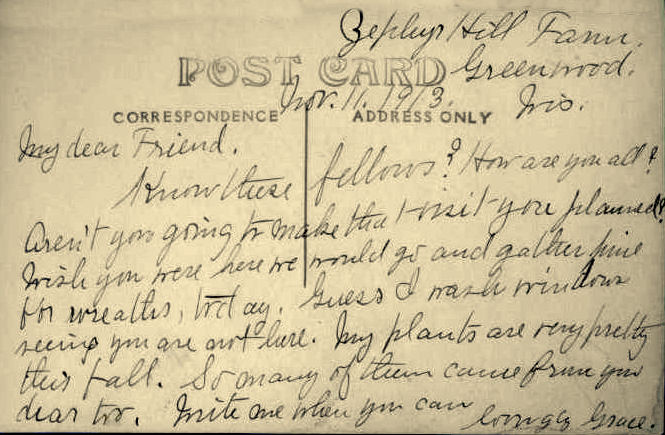 Zephyr Hill Farm,
POST CARD
Greenwood.
Nov. 11. 1913. Wis.
CORRESPONDENCE
ADDRESS ONLY
My dear Friend.
Know these fellows? How are you all?
Aren't you going to make that visit you planned?
Wish you were here we would go and gather pine
for wreaths, today. Guess I wash windows
seeing you are not here. My plants are very pretty
this fall. So many of them came from you
dear too. Write me when you can
Lovingly Grace.